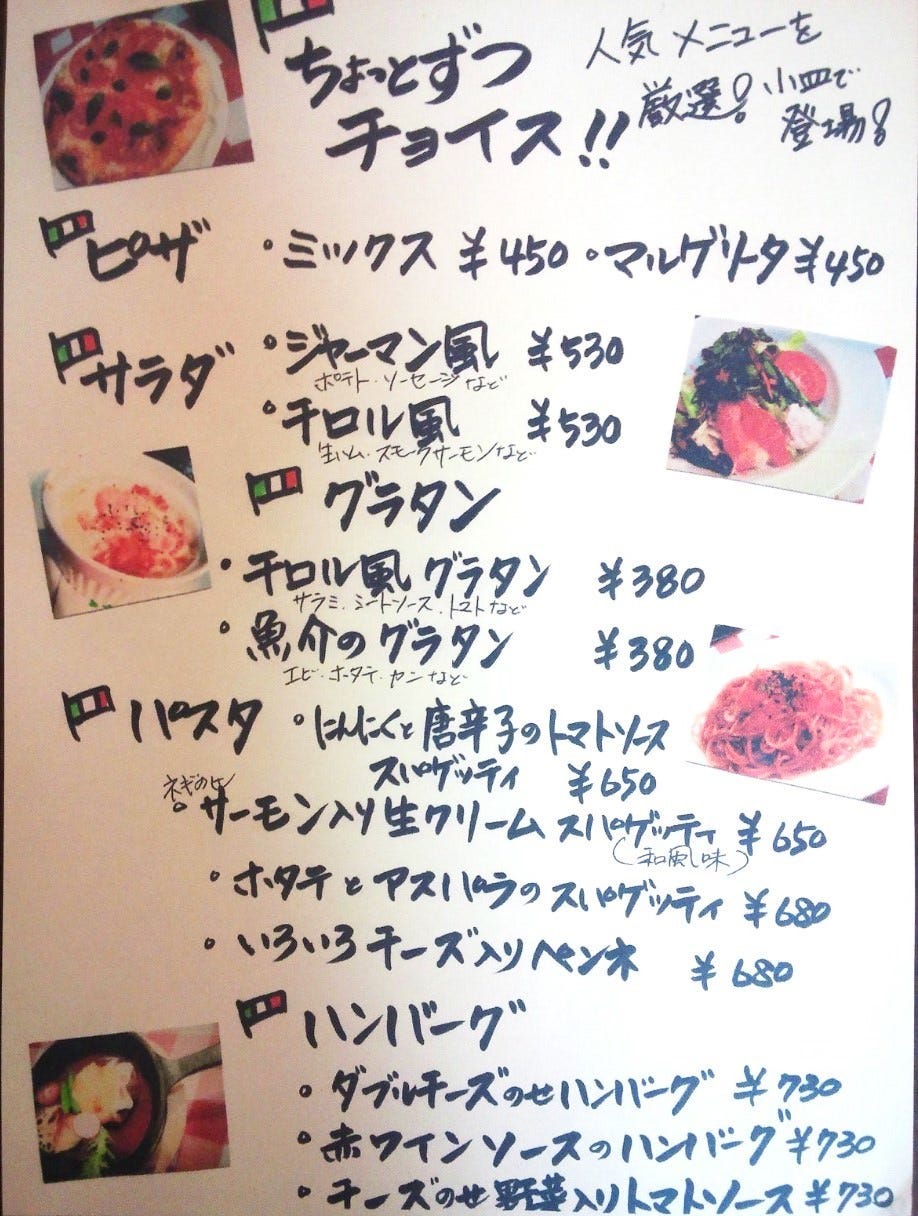 ちょっとずつ
チョイス!!
人気メニューを
厳選! 小皿で
登場!
ピザ ・ミックス ¥450 ・マルゲリータ ¥450
サラダ ・ジャーマン風 ¥530
ポテト・ソーセージなど
・チロル風 ¥530
生ハム・スモークサーモンなど
グラタン
・チロル風グラタン ¥380
サラミ・ミートソース・トマトなど
・魚介のグラタン ¥380
エビ・ホタテ・カニなど
パスタ ・にんにくと唐辛子のトマトソース
スパゲッティ ¥650
ネギのせ
・サーモン入り生クリームスパゲッティ ¥650
(和風味)
・ホタテとアスパラのスパゲッティ ¥680
・いろいろチーズ入りペンネ ¥680
ハンバーグ
・ダブルチーズのせハンバーグ ¥730
・赤ワインソースのハンバーグ ¥730
・チーズのせ野菜入りトマトソース ¥730